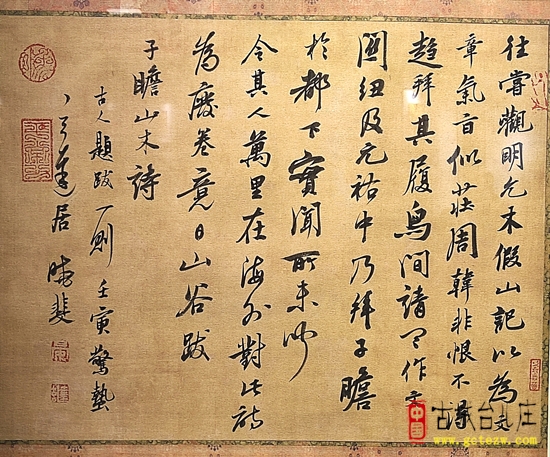 往嘗觀明允木假山記以為文
章氣旨似莊周韓非恨不得
趨拜其履舄間請問作文
關紐及元祐中乃拜子瞻
於都下實聞所未聞
今其人萬里在海外對此詩
為廢卷竟日山谷跋
子瞻山木詩
古人題跋一則 壬寅驚蟄
居
中国
台儿庄
www.getezw.com